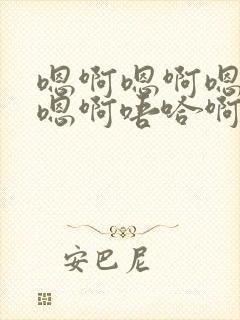 嗯啊嗯啊嗯
嗯啊唔哈啊
安巴尼